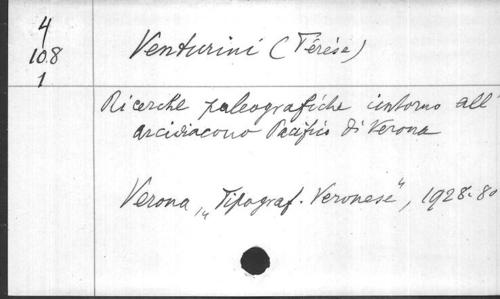 4
108
1
Venturini (Térèse)
Ricerche paleografiche intorno all'
arcidiacono Pacifico di Verona
Verona, "Tipograf. Veronese", 1928-8o